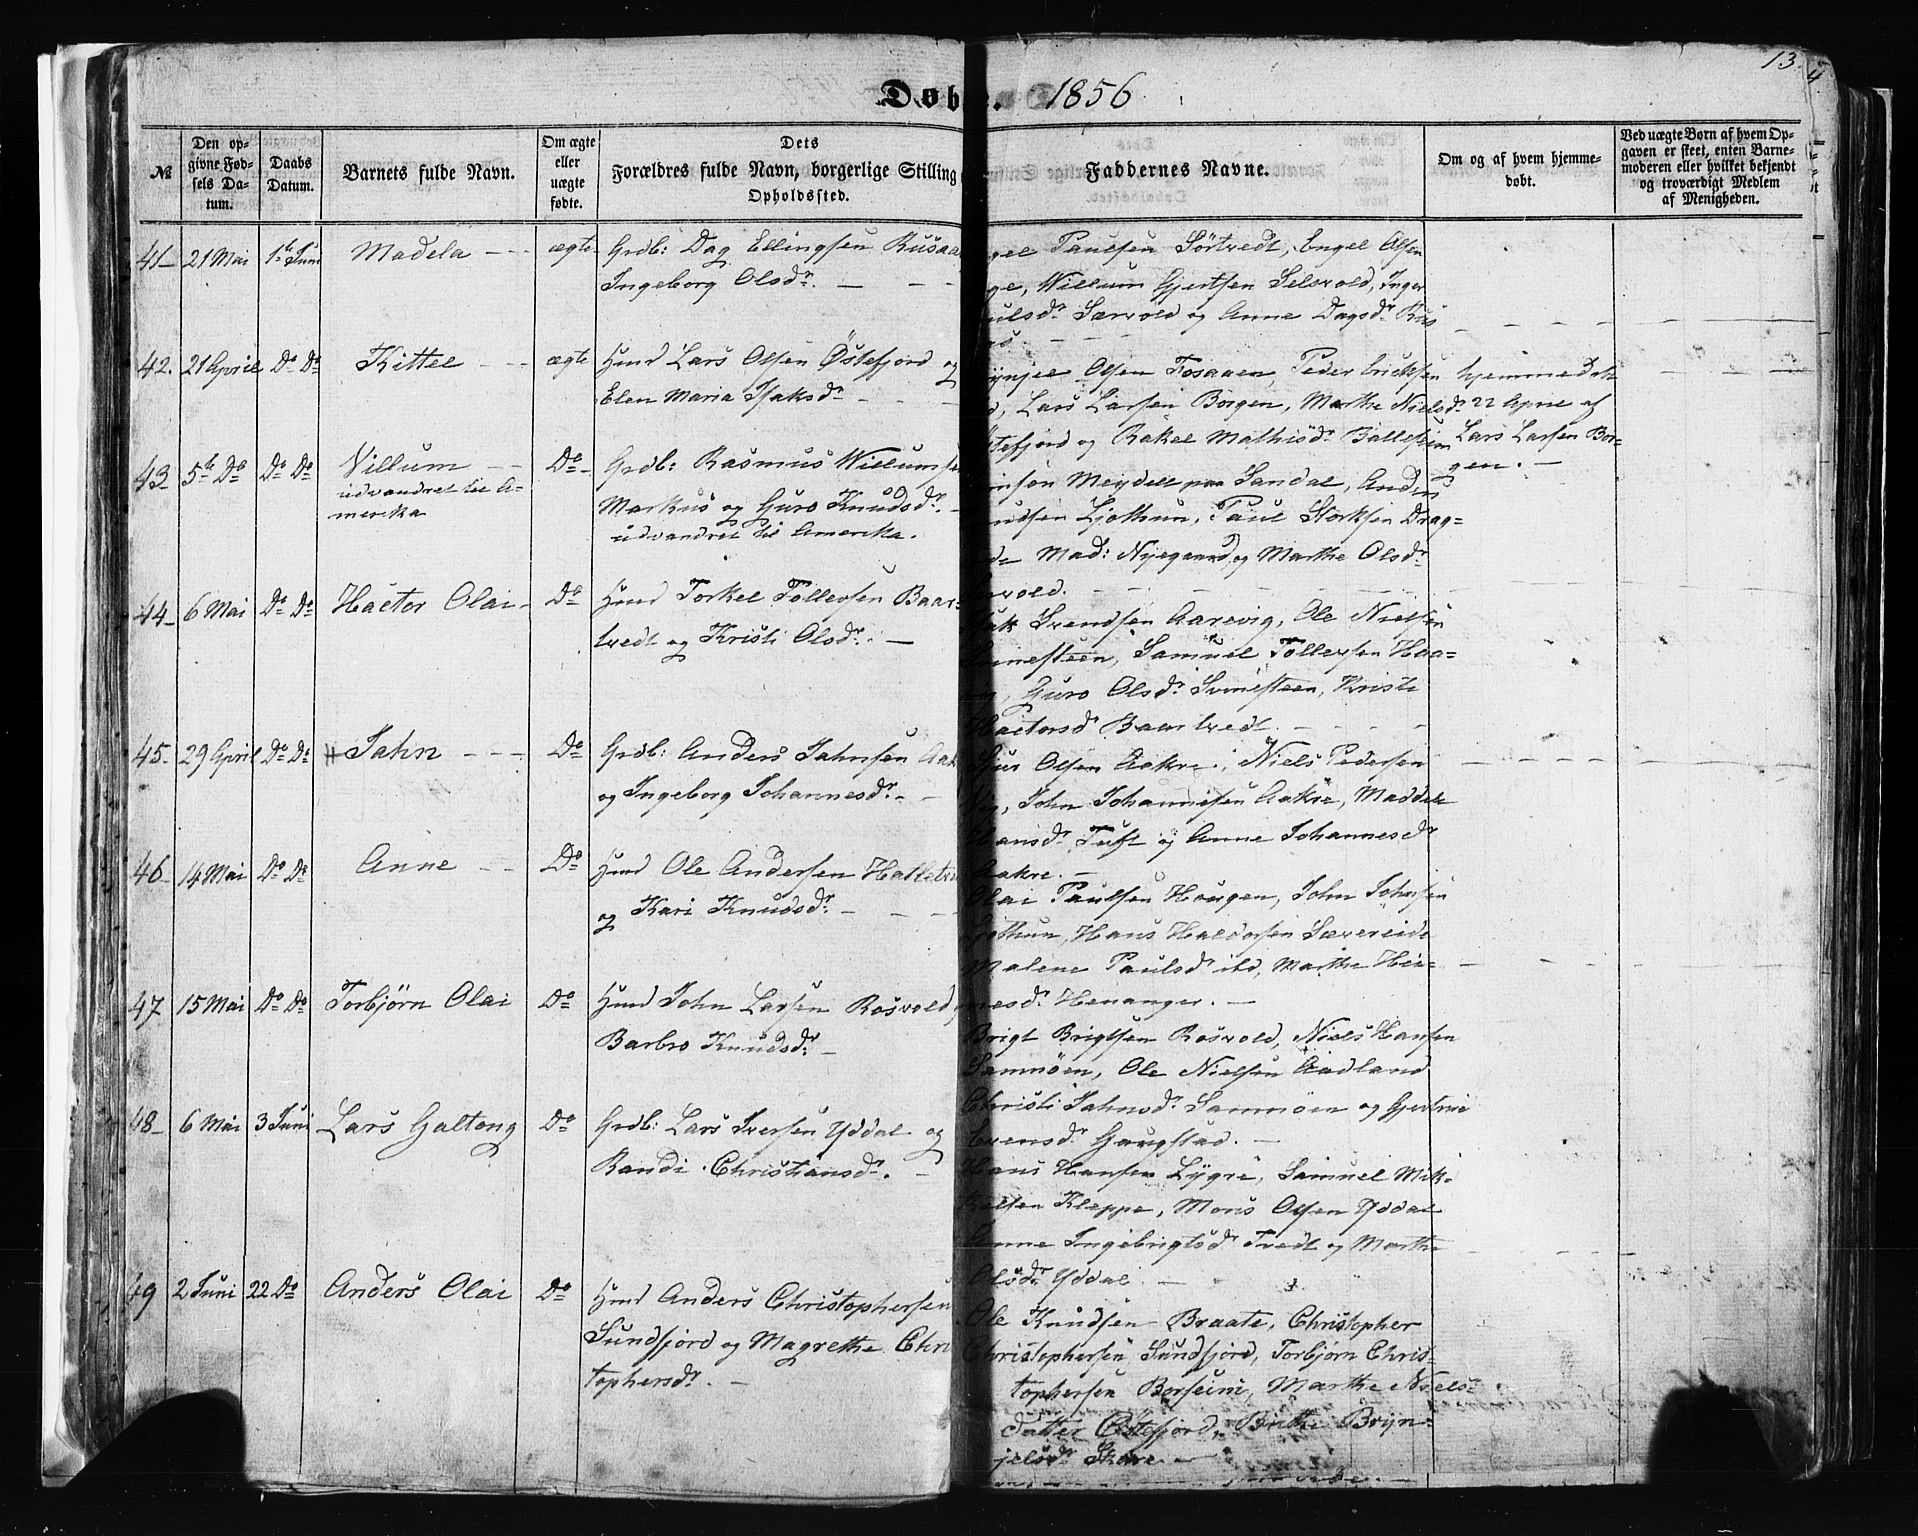 13
Døbte. 1856
№
Den op-
givne Fød-
sels Da-
tum.
Daabs
Datum.
Barnets fulde Navn.
Om ægte
eller
uægte
fødte.
Dets
Forældres fulde Navn, borgerlige Stilling
Opholdssted.
Faddernes Navne.
Om og af hvem hjemme-
døbt.
Ved uægte Børn af hvem Op-
gaven er skeet, enten Barne-
moderen eller hvilket bekjendt
og troværdigt Medlem
af Menigheden.
41 21 Mai 1ste Juni Madela ægte Grdb: Dag Ellingsen Rusaa
Ingeborg Olsdr.
Paulsen Sörtvedt, Engel Olsen
Willum Gjertsen Selsvold, Inger
Særvold og Anne Dagsdr. Rus
42. 21 April Do Do Kittel ægte Hmd Lars Olsen Östefjord og
Elen Maria Isaksdr
Olsen Fosaaen, Peder Ericksen
Lars Larsen Borgen, Marthe Nielsdr
og Rakel Mathisdr. Ballesiim
hjemmedøbt
22 April af
Lars Larsen Bor-
gen.
43 5te Do Do Do Villum Do Grdb: Rasmus Willumsen
udvandret til A-
merika
Markus og Guro Knudsdr.
udvandret til Amerika.
Meydell paa Sandal, Anders
Ljothun, Paul Storksen Drag-
Mad: Nyegaard og Marthe Olsdr
44 6 Mai Do Do Hactor Olai Do Hmd Torkel Tollevsen Baar-
tvedt og Kristi Olsdr.
Svendsen Aarevig, Ole Nielsen
Samuel Tollevsen Haa-
Guro Olsdr. Svinesteen, Kristi
Hactorsdr Baartvedt
45 29 April Do Do Jahn Do Grdb: Anders Jahnsen Aak
og Ingeborg Johannesdr.
Olsen Aakre, Niels Pedersen
John Johannesen Aakre, Maddele
Hansdr. Tuft og Anne Johannesdr
Aakre.
46 14 Mai Do Do Anne Do Hmd Ole Andersen
og Kari Knudsdr.
Olai Paulsen Hougen, John Johnsen
Ljothun, Hans Haldorsen Sævereide
Malene Paulsdr ibd, Marthe Hei-
nesdr. Henanger.
47 15 Mai Do Do Torbjørn Olai Do Hmd John Larsen Rosvold
Barbro Knudsdr.
Brigt Brigtsen Rosvold, Niels Hansen
Samnöen, Ole Nielsen Aadland
Christi Jahnsdr. Samnöen og Gjertrue
Evensdr. Gaugstad.
48 6 Mai 3 Juni Lars Galtung Do Grdb: Lars Iversen Yddal og
Randi Christiansdr.
Hans Hansen Lygre, Samuel Mik-
kelsen Kleppe, Mons Olsen Yddal
Anne Ingebrigtsdr Tvedt og Marthe
Olsdr. Yddal
49 2 Juni 22 Do Anders Olai Do Hmd Anders Christophersen
Sundfjord og Magrethe Chri
tophersdr.
Ole Knudsen Braate, Christopher
Christophersen Sundfjord, Torbjørn Chris-
tophersen Borseim, Marthe Niels-
datter Östefjord, Brithe Bryn-
jelsdr. Skare